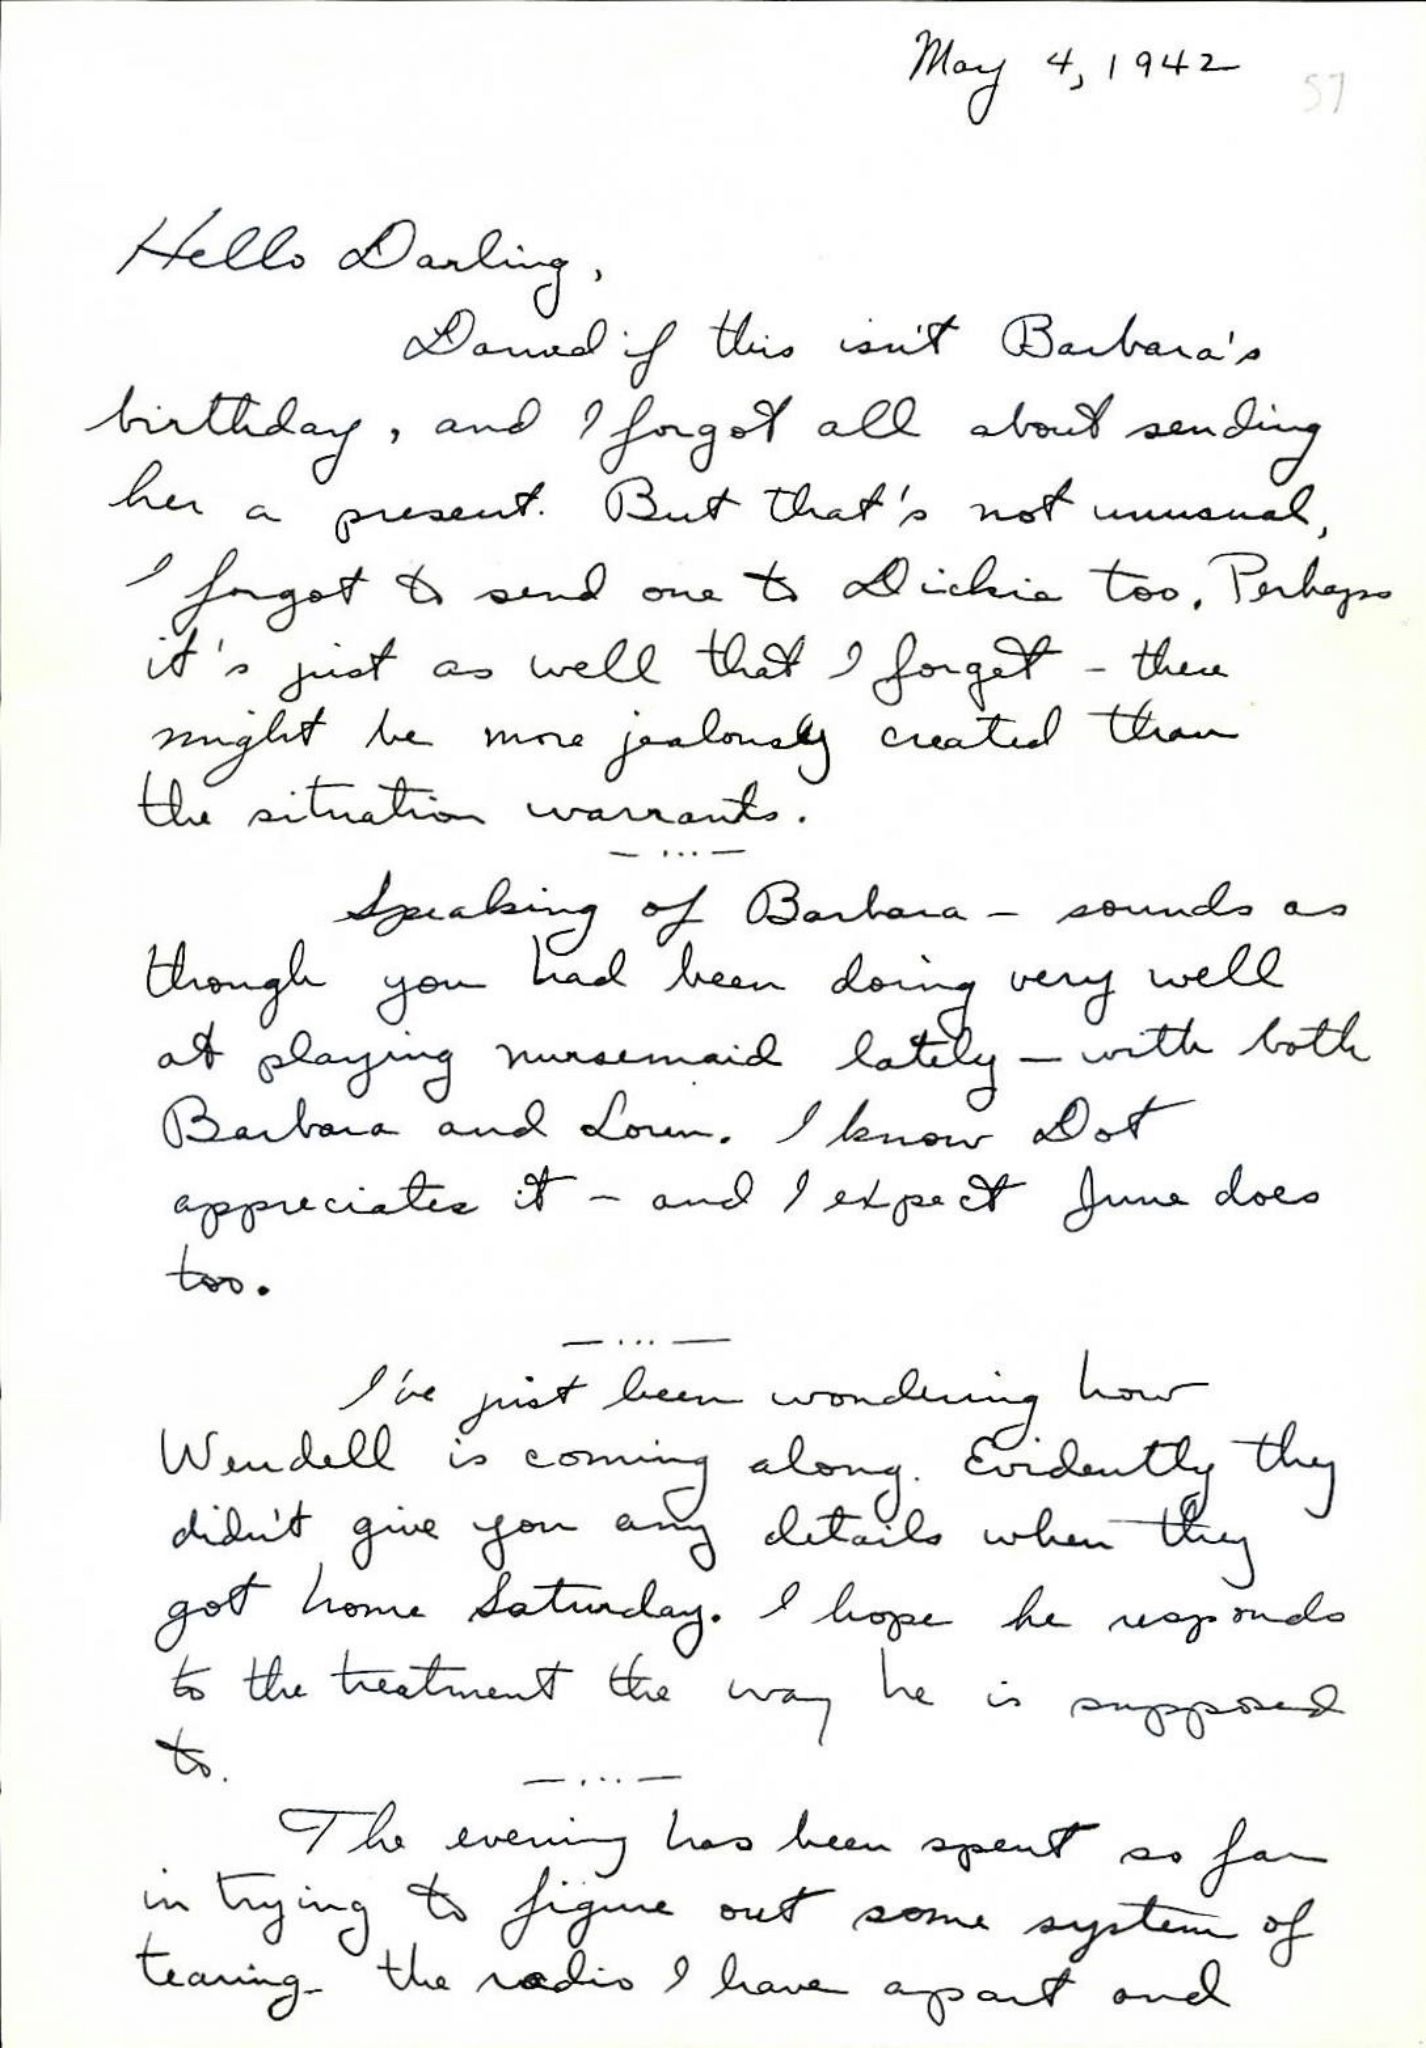 May 4, 1942
57
Hello Darling,
Darned if this isn't Barbara's
birthday, and I forgot all about sending
her a present. But that's not unusual,
I forgot to send one to Dickie too. Perhaps
it's just as well that I forget - there
might be more jealously created than
the situation warrants.
— ... —
Speaking of Barbara - sounds as
though you had been doing very well
at playing nursemaid lately - with both
Barbara and Loren. I know Dot
appreciates it - and I expect June does
too.
— ... —
I've just been wondering how
Wendell is coming along. Evidently they
didn't give you any details when they
got home Saturday. I hope he responds
to the treatment the way he is supposed
to.
— ... —
The evening has been spent so far
in trying to figure out some system of
tearing the radio I have apart and